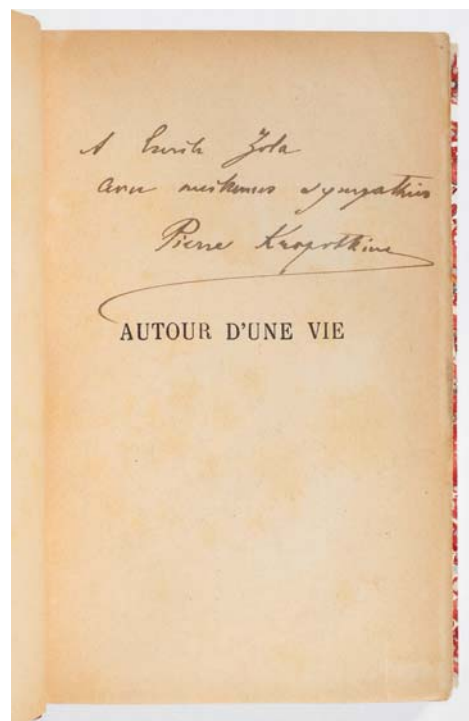 A Emile Zola
avec meilleures sympathies
Pierre Kropotkine
AUTOUR D'UNE VIE